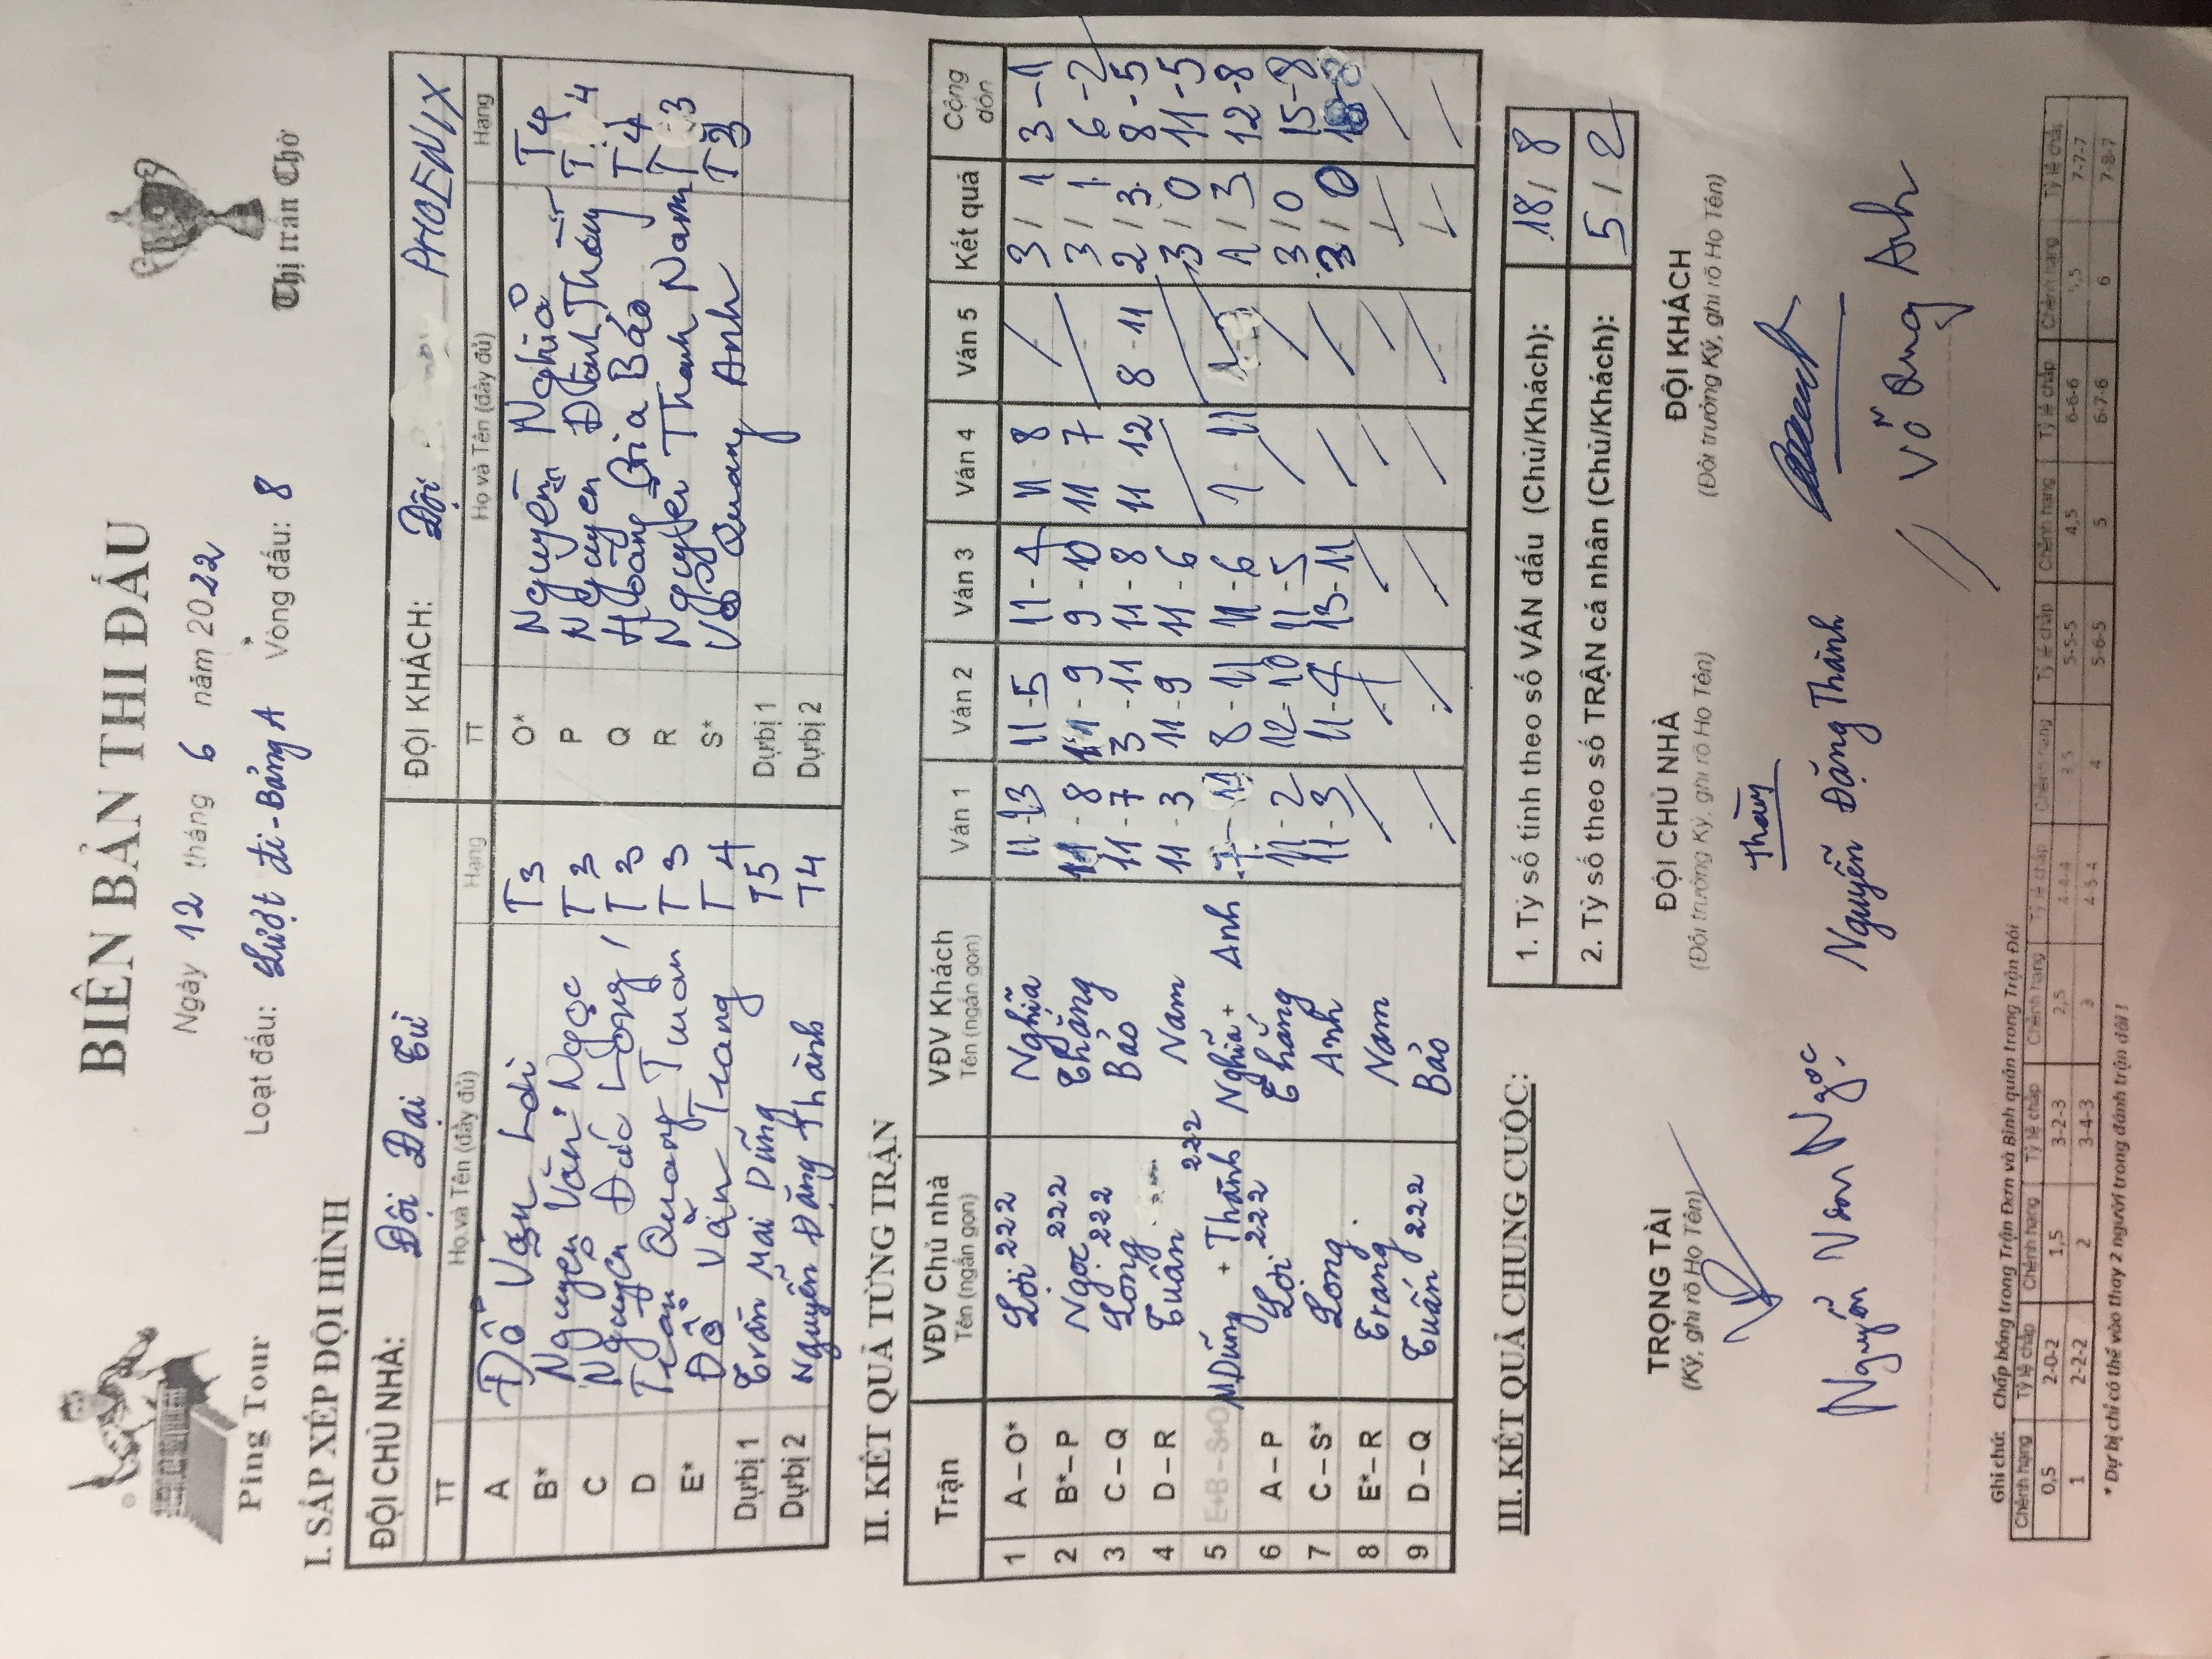 BIÊN BẢN THI ĐẤU
Ping Tour
Ngày 12 tháng 6 năm 2022
Loạt đấu: Lượt đi - Bảng A Vòng đấu: 8
Thị trấn Chờ
I. SẮP XẾP ĐỘI HÌNH
ĐỘI CHỦ NHÀ: Đội Đại Từ ĐỘI KHÁCH: Đội PHOENIX
TT Họ và Tên (đầy đủ) Hạng TT Họ và Tên (đầy đủ) Hạng
A Đỗ Văn Lợi T3 O* Nguyễn Nghĩa T4
B* Nguyễn Văn Ngọc T3 P Nguyễn Đình Thắng T4
C Nguyễn Đức Long T3 Q Hoàng Gia Bảo T4
D Trần Quang Tuấn T3 R Nguyễn Thanh Nam T3
E* Đỗ Văn Trang T4 S* Võ Quang Anh T3
Dự bị 1 Trần Mai Dũng T5 Dự bị 1
Dự bị 2 Nguyễn Đặng Thành T4 Dự bị 2
II. KẾT QUẢ TỪNG TRẬN
Trận VĐV Chủ nhà Tên (ngắn gọn) VĐV Khách Tên (ngắn gọn) Ván 1 Ván 2 Ván 3 Ván 4 Ván 5 Kết quả Cộng dồn
1 A – O* Lợi 222 Nghĩa 11-13 11-5 11-4 11-8 / 3/1 3-1
2 B* – P Ngọc 222 Thắng 11-8 11-9 9-10 11-7 / 3/1 6-2
3 C – Q Long 222 Bảo 11-7 3-11 11-8 11-12 8-11 2/3 8-5
4 D – R Tuấn Nam 11-3 11-9 11-6 / / 3/0 11-5
5 E+B – S+O M.Dũng + Thành 222 Nghĩa + Anh 7-11 8-11 11-6 7-11 1/3 12-8
6 A – P Lợi 222 Thắng 11-2 12-10 11-5 / / 3/0 15-8
7 C – S* Long Anh 11-3 11-4 13-11 / / 3/0 18-8
8 E* – R Trang Nam / / / / / / /
9 D – Q Tuấn 222 Bảo / / / / / / /
III. KẾT QUẢ CHUNG CUỘC:
1. Tỷ số tính theo số VÁN đấu (Chủ/Khách): 18/8
2. Tỷ số theo số TRẬN cá nhân (Chủ/Khách): 5/2
TRỌNG TÀI ĐỘI CHỦ NHÀ ĐỘI KHÁCH
(Ký, ghi rõ Họ Tên) (Đội trưởng Ký, ghi rõ Họ Tên) (Đội trưởng Ký, ghi rõ Họ Tên)
Thành
Nguyễn Văn Ngọc Nguyễn Đặng Thành Võ Quang Anh
Ghi chú: Chấp bóng trong Trận Đơn và Bình quân trong Trận Đôi
Chênh hạng Tỷ lệ chấp Chênh hạng Tỷ lệ chấp Chênh hạng Tỷ lệ chấp Chênh hạng Tỷ lệ chấp Chênh hạng Tỷ lệ chấp Chênh hạng Tỷ lệ chấp
0,5 2-0-2 1,5 3-2-3 2,5 4-4-4 3,5 5-5-5 4,5 6-6-6 5,5 7-7-7
1 2-2-2 2 3-4-3 3 4-5-4 4 5-6-5 5 6-7-6 6 7-8-7
* Dự bị chỉ có thể vào thay 2 người trong đánh trận đôi !